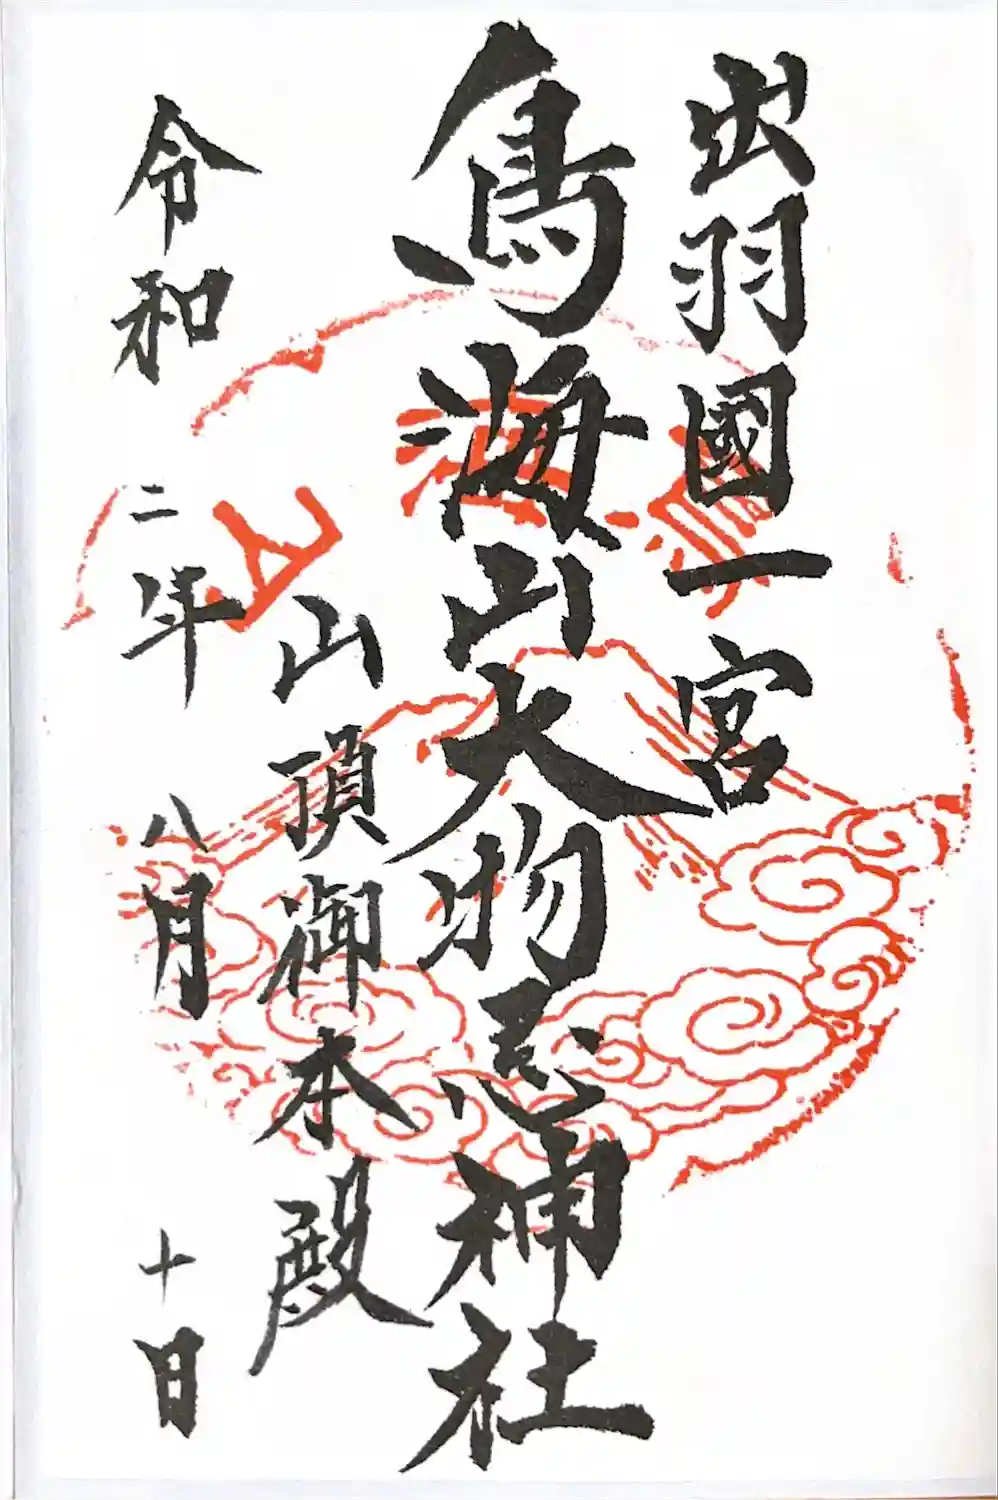 出羽國一宮
鳥海山大物忌神社
山頂御本殿
令和二年八月十日
鳥海山